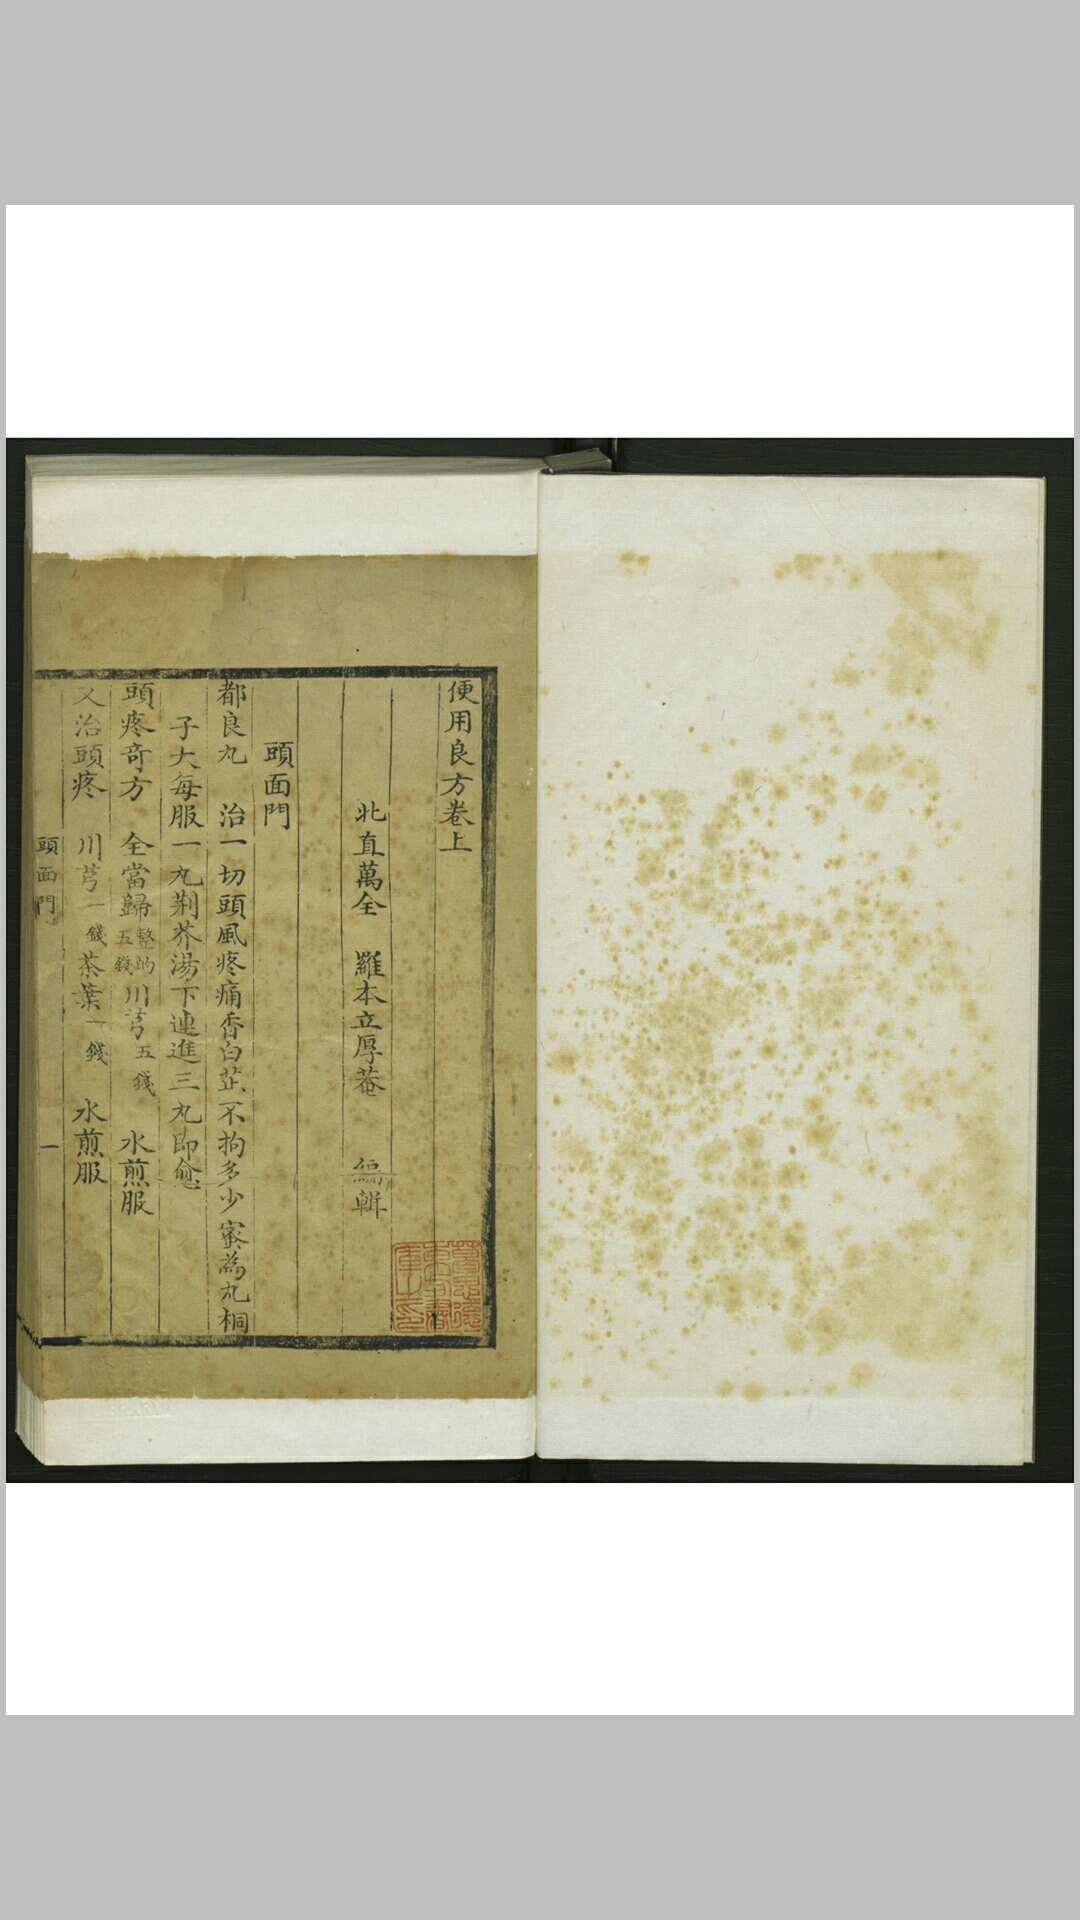 便用良方卷上
北直萬全　羅本立厚菴　編輯
頭面門
都良丸　治一切頭風疼痛香白芷不拘多少蜜為丸桐
子大每服一丸荆芥湯下連進三丸即愈
頭疼奇方　全當歸整的五錢川芎五錢　水煎服
又治頭疼　川芎一錢茶葉一錢　水煎服
頭面門　一